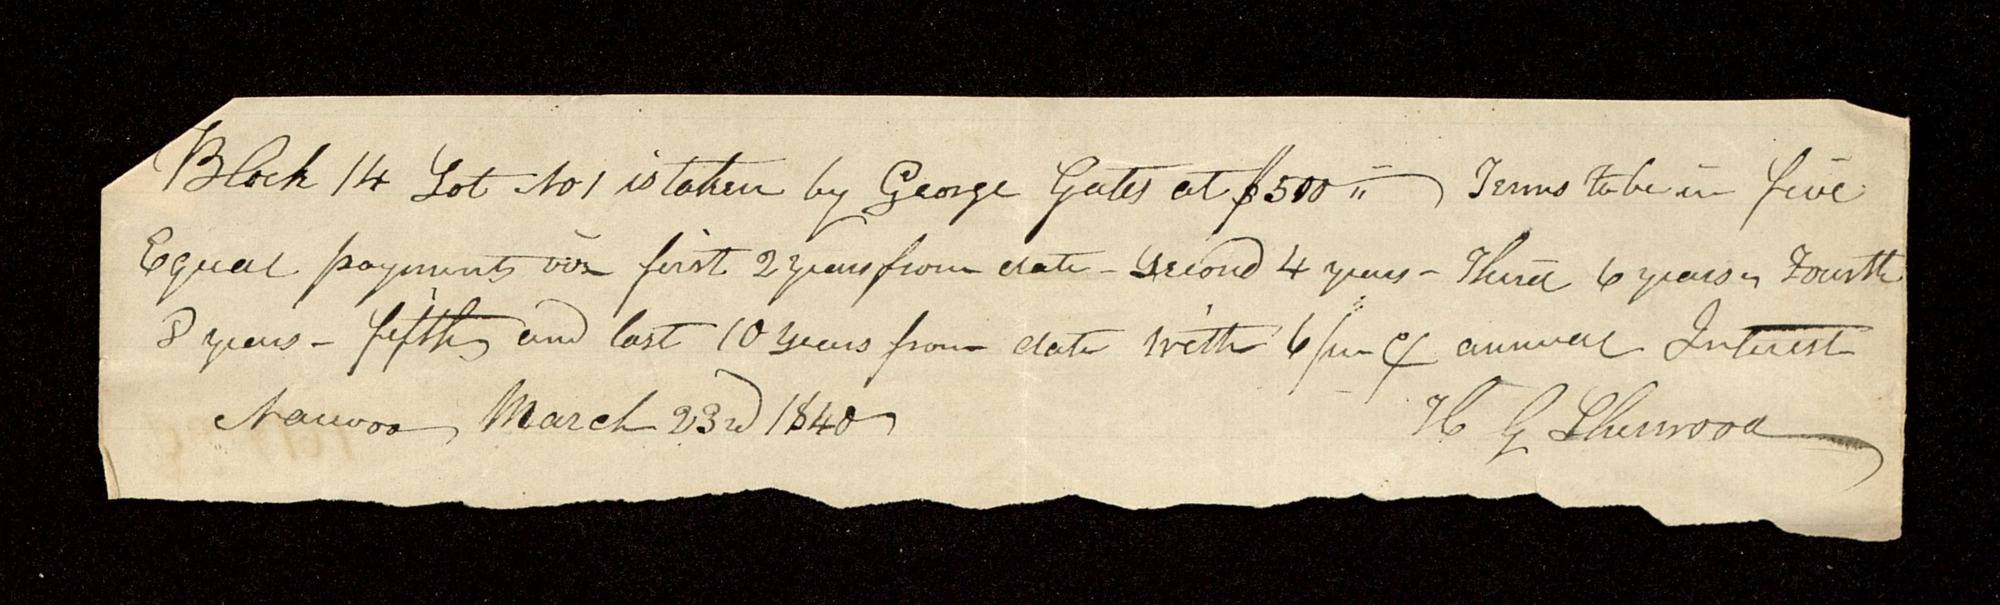 Block 14 Lot No 1 is taken by George Gates at $500 " Terms to be in five
Equal payments viz first 2 years from date - Second 4 years - Third 6 years, Fourth
8 years - fifth, and last 10 years from date with 6 per ct annual Interest
Nauvoo, March 23rd 1840
H G Sherwood